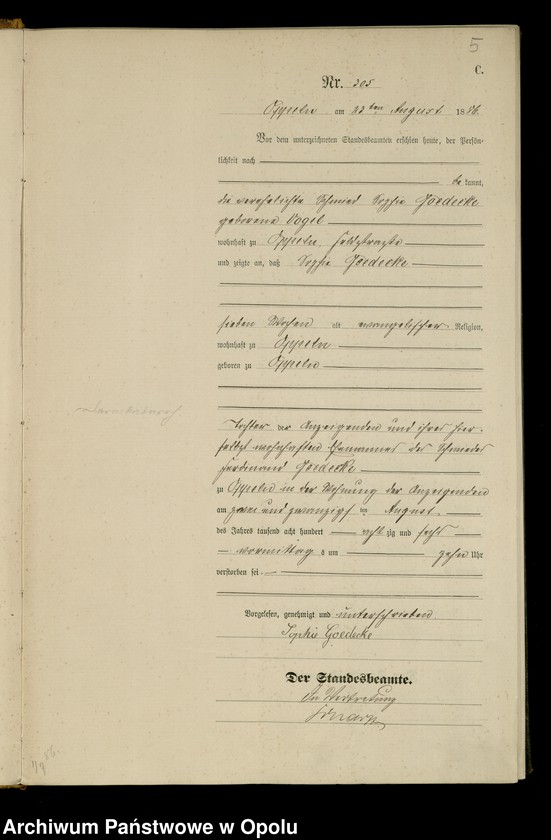 5
C.
Nr. 305
Oppeln am 23ten August 1886.
Vor dem unterzeichneten Standesbeamten erschien heute, der Persön-
lichkeit nach
be kannt,
die verehelichte Schmied Sophie Goedecke
geborene Vogel
wohnhaft zu Oppeln, Feldstraße
und zeigte an, daß Sophie Goedecke
sieben Wochen alt evangelischer Religion,
wohnhaft zu Oppeln
geboren zu Oppeln
Tochter der Anzeigenden und ihres hier-
selbst wohnhaften Ehemannes des Schmiedes
Ferdinand Goedecke
zu Oppeln in der Wohnung der Anzeigenden
am zwei und zwanzigsten August
des Jahres tausend acht hundert acht zig und sechs
vormittag s um zehn Uhr
verstorben sei.
Vorgelesen, genehmigt und unterschrieben
Sophie Goedecke
Der Standesbeamte.
In Vertretung
Archiwum Państwowe w Opolu